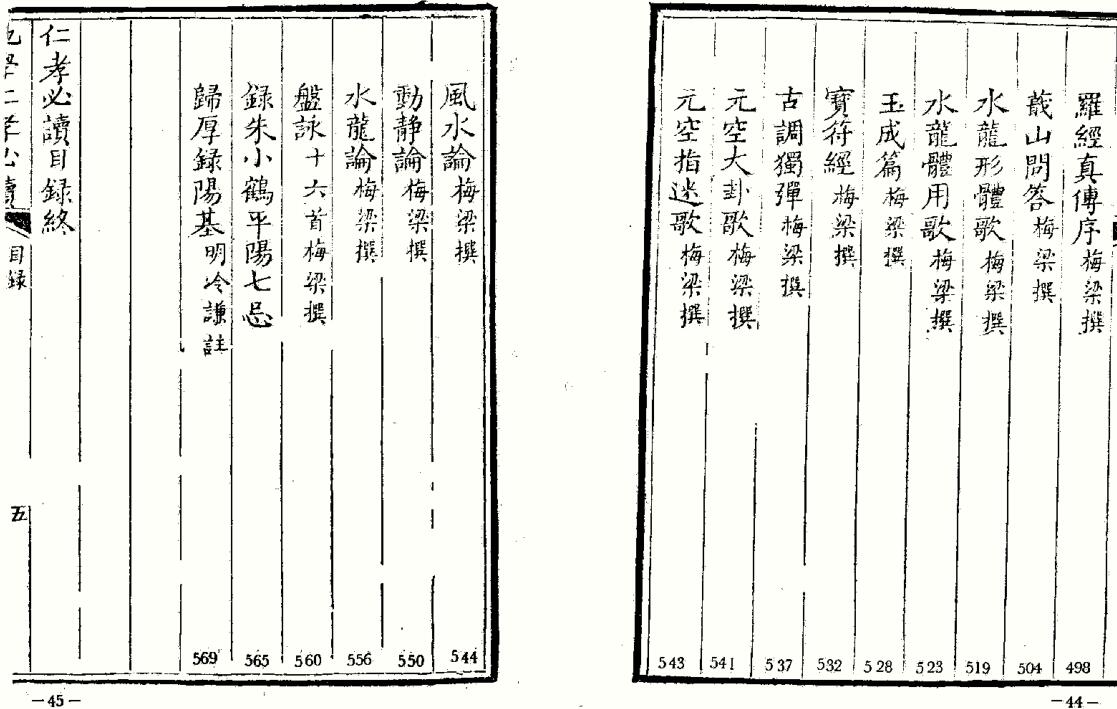 羅經真傳序梅梁撰 498
蕺山問答梅梁撰 504
水龍形體歌梅梁撰 519
水龍體用歌梅梁撰 523
玉成篇梅梁撰 528
寶符經梅梁撰 532
古調獨彈梅梁撰 537
元空大卦歌梅梁撰 541
元空指迷歌梅梁撰 543
—44—
風水論梅梁撰 544
動靜論梅梁撰 550
水龍論梅梁撰 556
盤詠十六首梅梁撰 560
録朱小鶴平陽七忌 565
歸厚録陽基明冷謙註 569
仁孝必讀目録終
目録
五
—45—